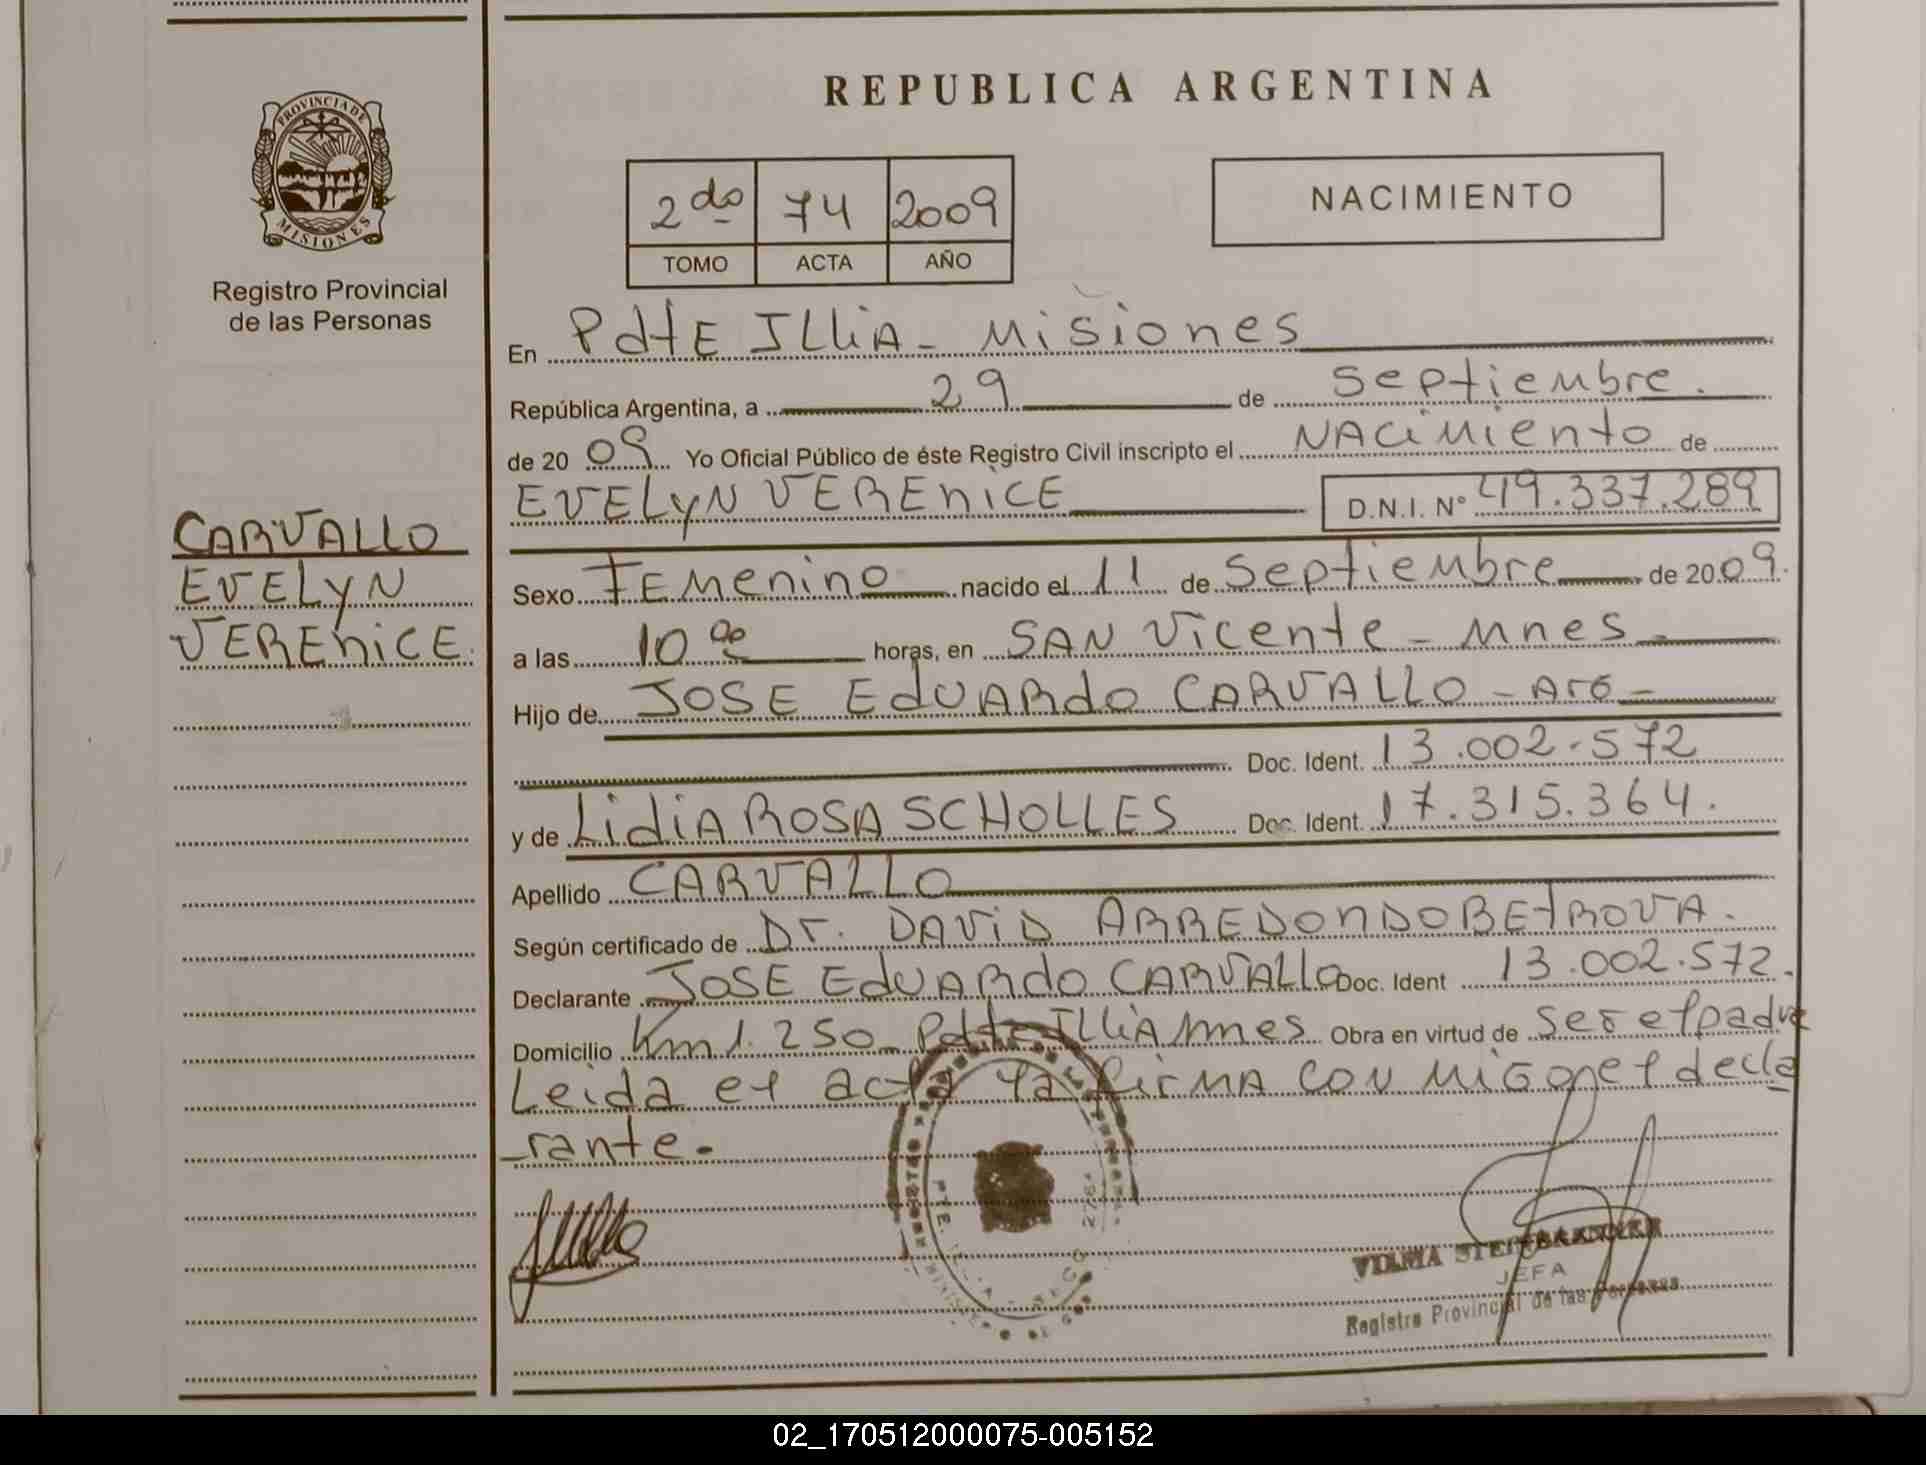 REPUBLICA ARGENTINA
PROVINCIA DE
MISIONES
Registro Provincial
de las Personas
2do 74 2009
TOMO ACTA AÑO
NACIMIENTO
En Pdte ILLIA - Misiones
República Argentina, a 29 de septiembre.
de 2009 Yo Oficial Público de éste Registro Civil inscripto el NACIMIENTO de
EVELYN VERENICE D.N.I. Nº 49.337.289
CARVALLO
EVELYN
VERENICE.
Sexo FEMENINO nacido el 11 de Septiembre de 2009.
a las 10 horas, en SAN Vicente - Mnes -
Hijo de JOSE EDUARDO CARVALLO - Arg -
Doc. Ident. 13.002.572
y de LIDIA ROSA SCHOLLES Doc. Ident. 17.315.364.
Apellido CARVALLO
Según certificado de Dr. DAVID ARREDONDO BETROVA.
Declarante JOSE EDUARDO CARVALLO Doc. Ident 13.002.572.
Domicilio Km 1.250 Pdte ILLIA Mnes Obra en virtud de ser el padre
Leida el acta la firma con migo el decla
rante.
VILMA
JEFA
Registro Provincial de las Personas
02_170512000075-005152